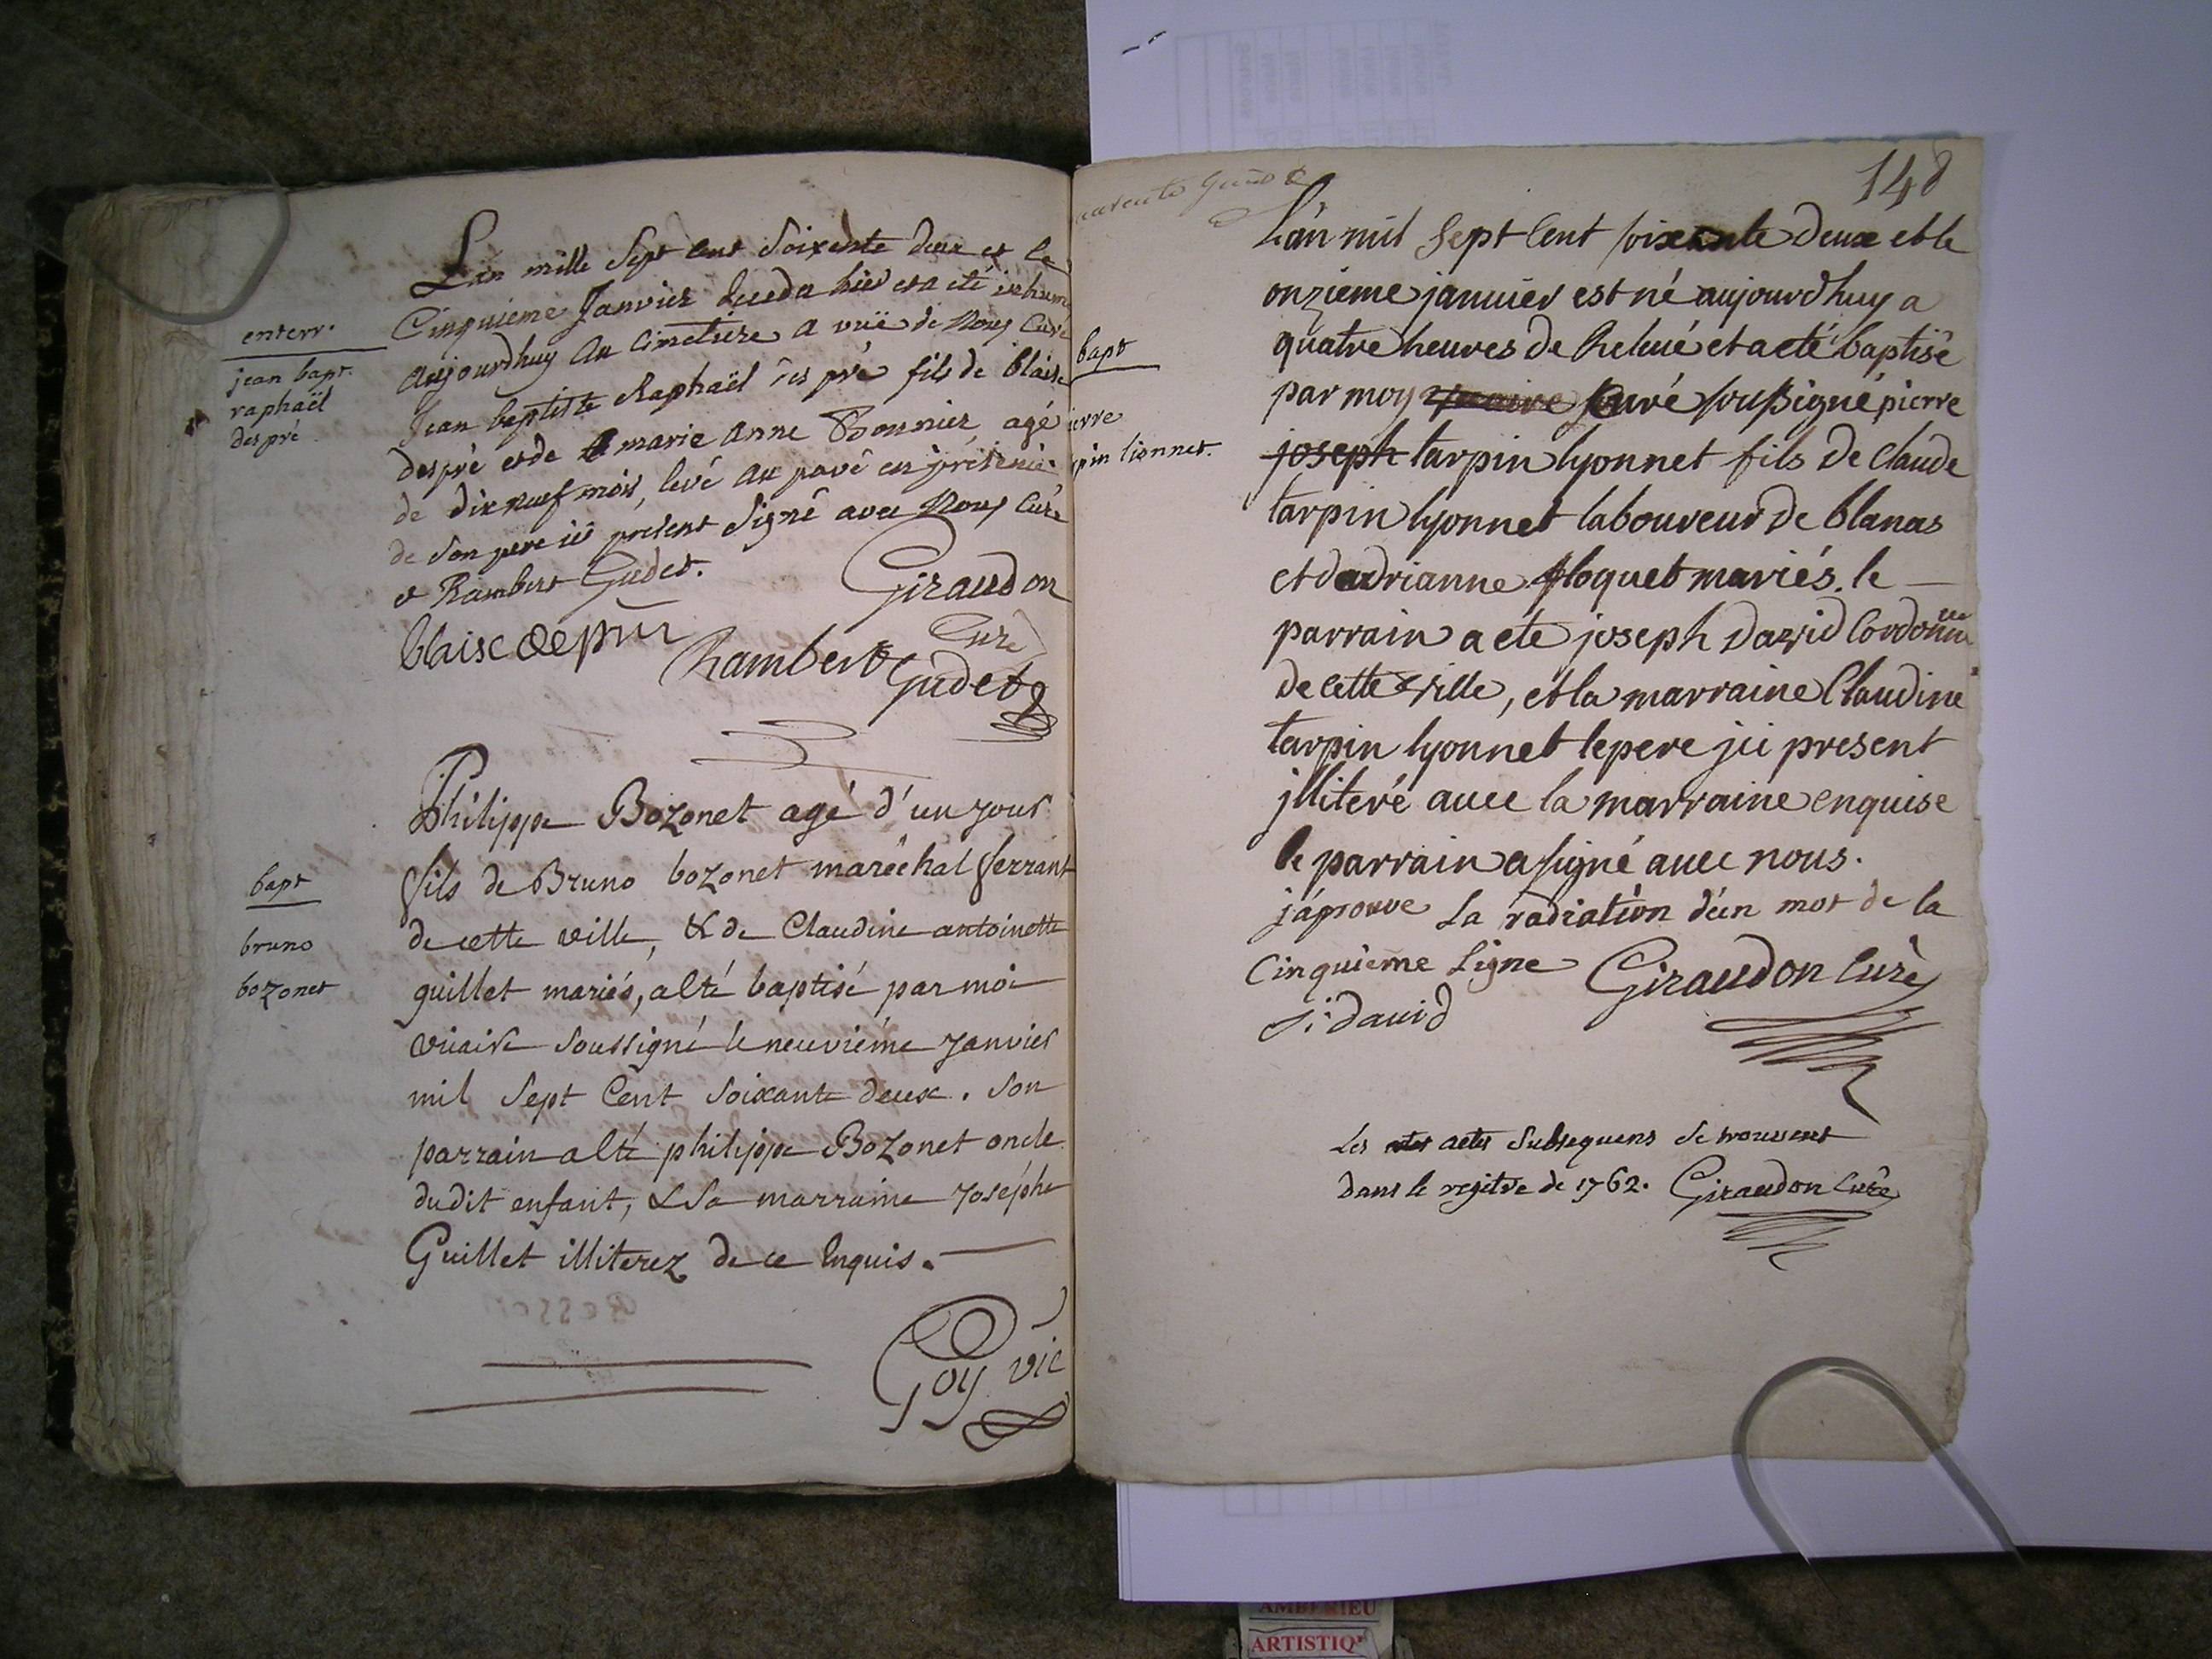 Lan mille Sept cent Soixente deux et le
Cinquieme Janvier decedu hier et a eté inhumé
enterr.
aujourdhuy au Cimetiere a vuë de Nous Curé
jean bapt.
raphaël
despré
Jean baptiste Raphaël des pré fils de blaise
des pré et de marie anne Bonnier agé
de dix neuf mois, levé au pavé en présence
de son pere ici present Signé avec Nous Curé
et Rambert Gudet.
Giraudon
Curé
blaise depré
Rambert Gudet
Philippe Bozonet agé d'un jour
fils de Bruno bozonet maréchal ferrant
bapt
bruno
bozonet
de cette ville, & de Claudine antoinette
guillet mariés, a été baptisé par moi
vicaire soussigné le neuviéme janvier
mil Sept Cent Soixante deux. Son
parrain a été philippe Bozonet oncle
dudit enfant, & Sa marraine joséphe
Guillet illiterez de ce Enquis.
Goy vic
148
L'an mil Sept Cent soixante deux et le
onzieme januier est né aujourdhuy a
quatre heures de Relevé et a eté baptisé
bapt
par moy curé soussigné pierre
ierre
pin lionnet.
joseph tarpin lyonnet fils de Claude
tarpin lyonnet laboureur de blanas
et dadrianne floquet mariés. le
parrain a eté joseph david Cordonnier
de cette ville, et la marraine Claudine
tarpin lyonnet le pere jci present
jlliteré auec la marraine enquise
le parrain a signé auec nous.
j'aprouve la radiation d'un mot de la
Cinquieme Ligne Giraudon Curé
j: dauid
Les actes Subsequens se trouvent
dans le regitre de 1762. Giraudon Curé
AMBERIEU
ARTISTIQ